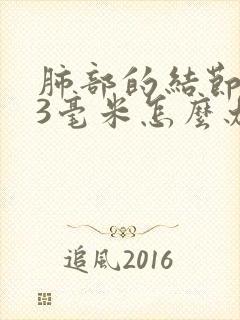 肺部的結節
3毫米怎麼
追風2016